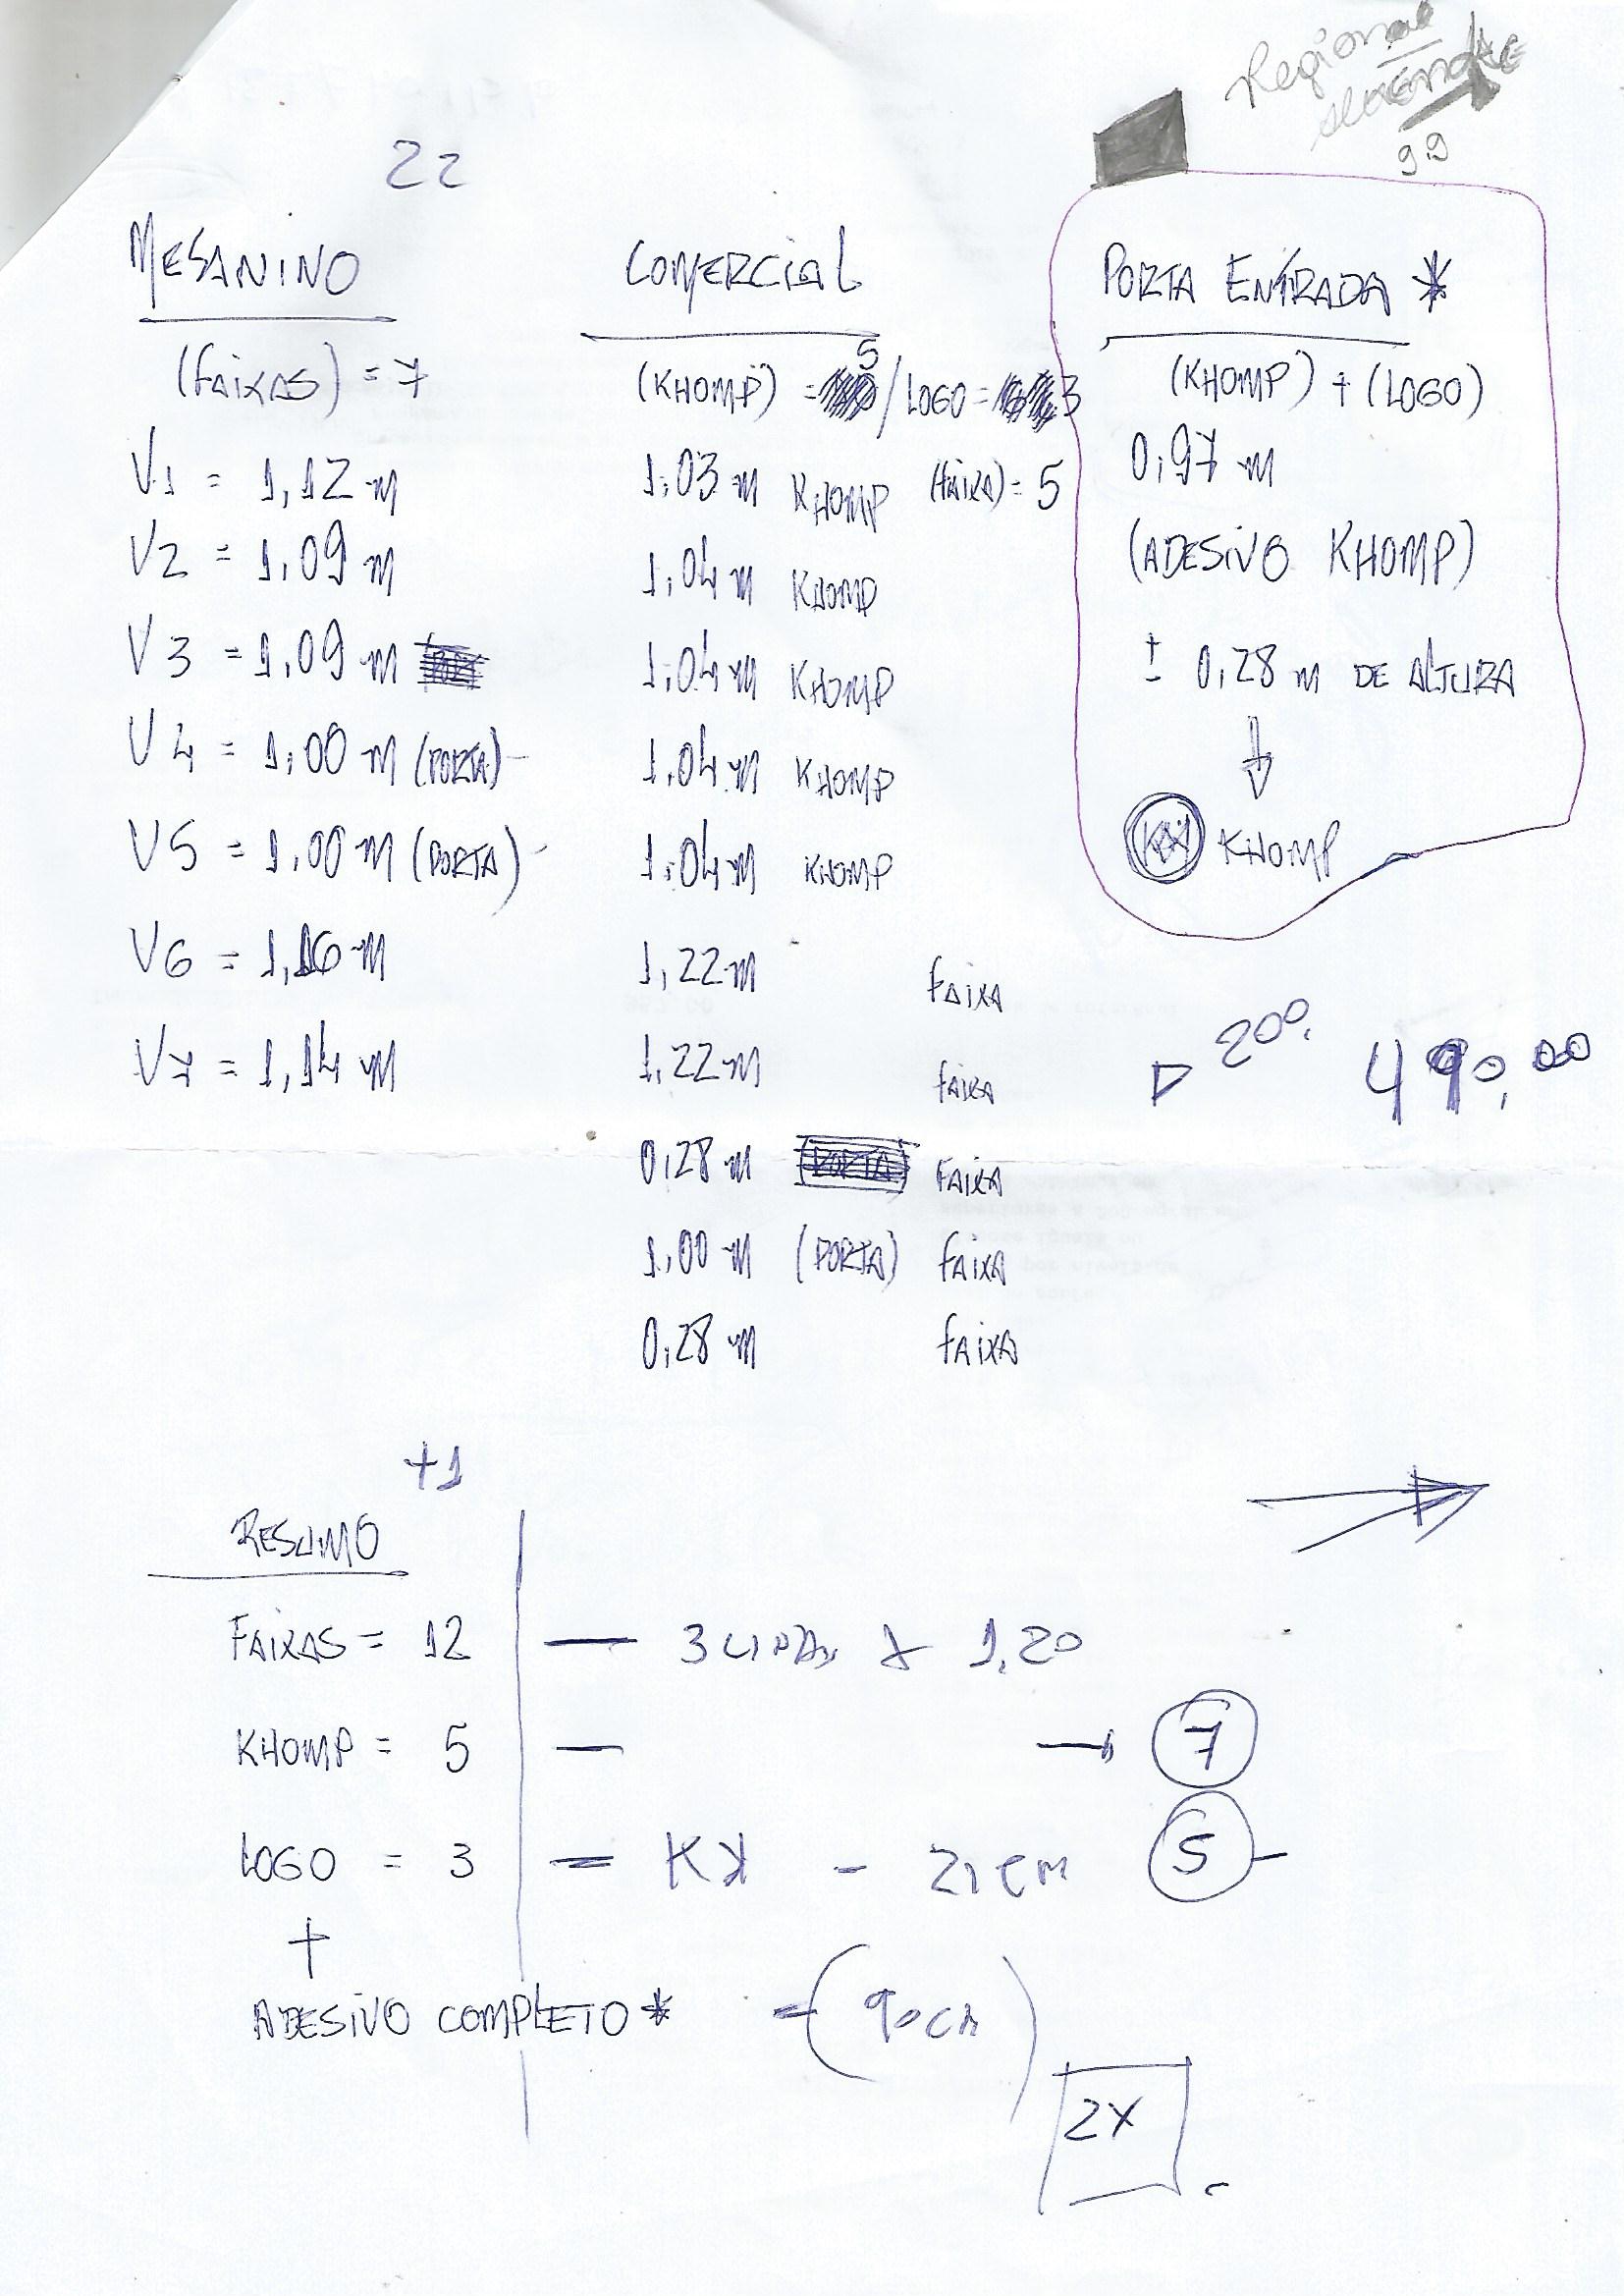 Regional
99
22
MESANINO
(FAIXAS) = 7
V1 = 1,12 m
V2 = 1,09 m
V3 = 1,09 m
V4 = 1,00 m (PORTA)
V5 = 1,00 m (PORTA)
V6 = 1,16 m
V7 = 1,14 m
COMERCIAL
(KHOMP) = 5 / LOGO = 3
1,03 m KHOMP (FAIXA) = 5
1,04 m KHOMP
1,04 m KHOMP
1,04 m KHOMP
1,04 m KHOMP
1,22 m FAIXA
1,22 m FAIXA
0,28 m FAIXA
1,00 m (PORTA) FAIXA
0,28 m FAIXA
PORTA ENTRADA *
(KHOMP) + (LOGO)
0,97 m
(ADESIVO KHOMP)
± 0,28 m DE ALTURA
KHOMP
490,00
+1
RESUMO
FAIXAS = 12 — 3 1,20
KHOMP = 5 — → 7
LOGO = 3 = - 21 cm 5 -
+
ADESIVO COMPLETO * = (90cm)
2X